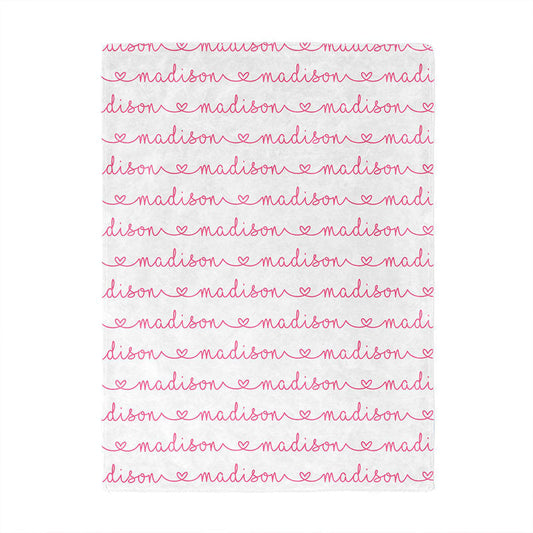 madison madison
madison madison madi
dison madison madison
madison madison madi
dison madison madison
madison madison madi
dison madison madison
madison madison madi
dison madison madison
madison madison madi
dison madison madison
madison madison madi
dison madison madison
madison madison madi
dison madison madison